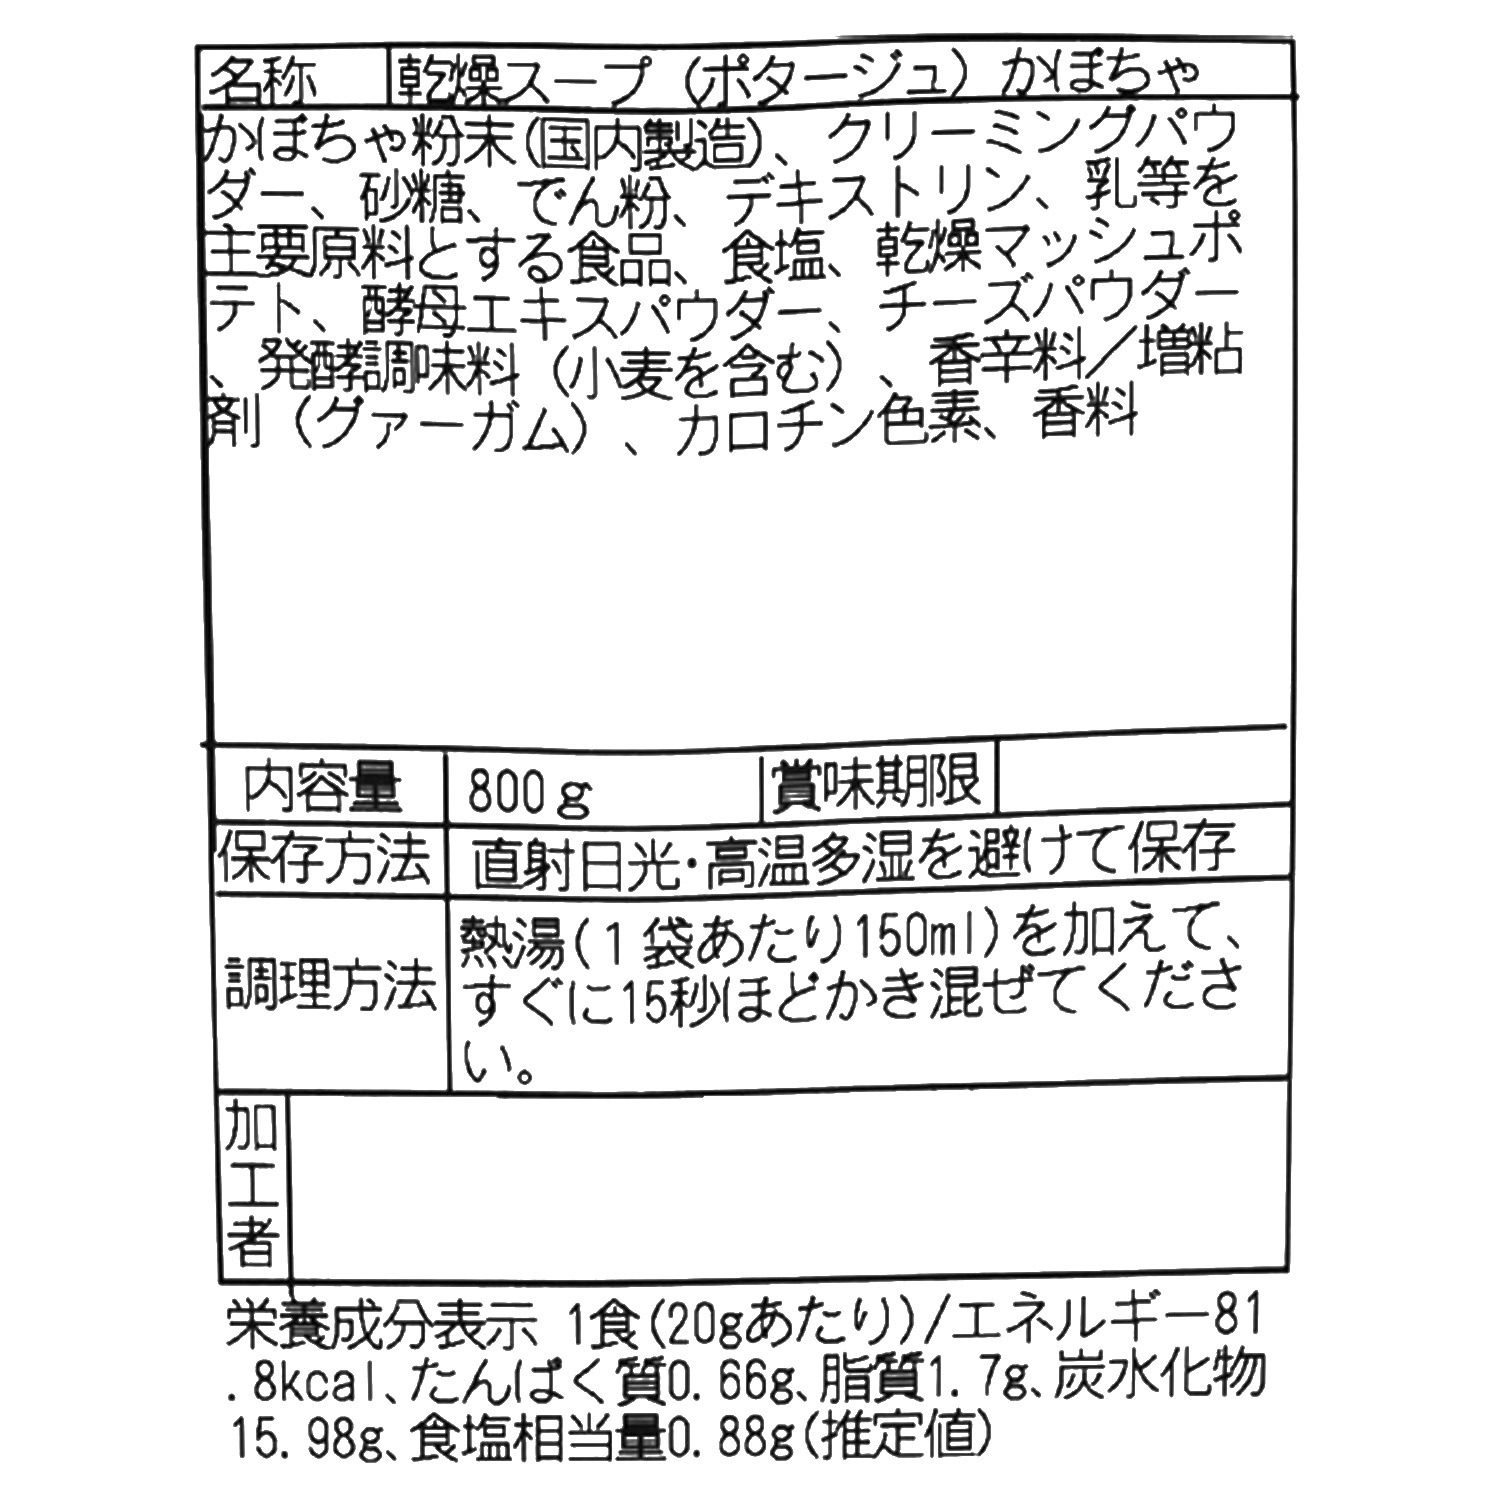 名称 乾燥スープ（ポタージュ）かぼちゃ
かぼちゃ粉末(国内製造)、クリーミングパウ
ダー、砂糖、でん粉、デキストリン、乳等を
主要原料とする食品、食塩、乾燥マッシュポ
テト、酵母エキスパウダー、チーズパウダー
、発酵調味料（小麦を含む）、香辛料／増粘
剤（グァーガム）、カロチン色素、香料
内容量 800g 賞味期限
保存方法 直射日光・高温多湿を避けて保存
調理方法 熱湯(1袋あたり150ml)を加えて、
すぐに15秒ほどかき混ぜてくださ
い。
加
工
者
栄養成分表示 1食(20gあたり)/エネルギー81
.8kcal、たんぱく質0.66g、脂質1.7g、炭水化物
15.98g、食塩相当量0.88g(推定値)